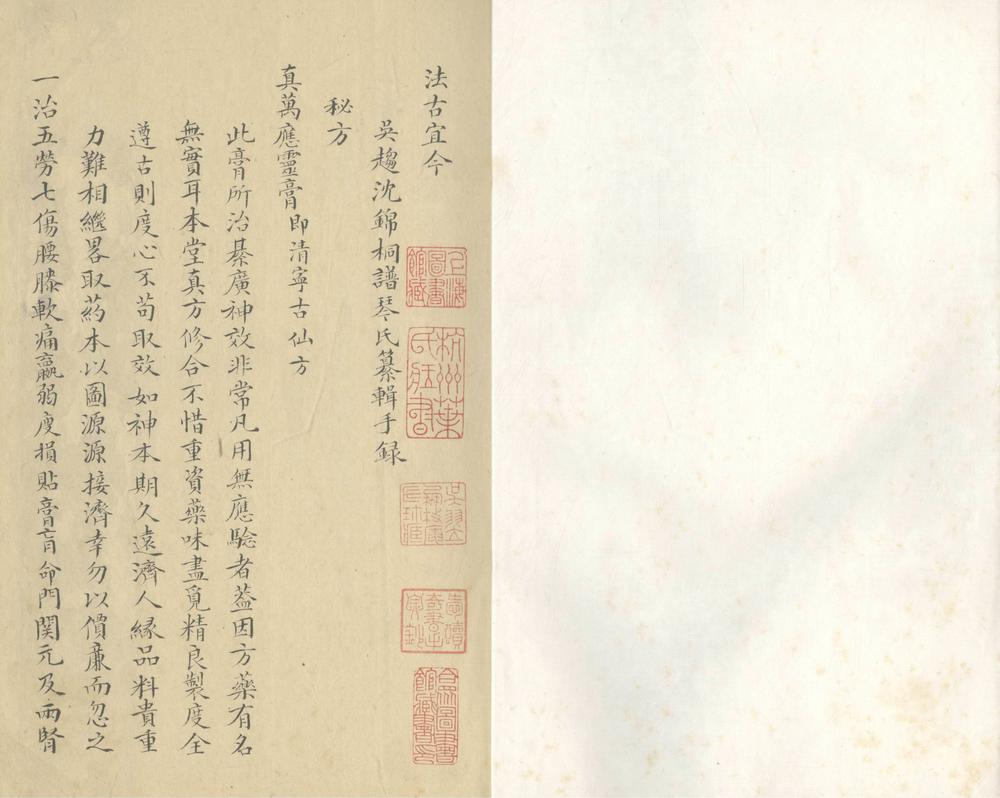 法古宜今
吳趨沈錦桐譜琴氏纂輯手録
秘方
真萬應靈膏即清寧古仙方
此膏所治綦廣神效非常凡用無應驗者葢因方藥有名
無實耳本堂真方修合不惜重資藥味盡覓精良製度全
遵古則度心不苟取效如神本期久遠濟人緣品料貴重
力難相繼畧取葯本以圖源源接濟幸勿以價廉而忽之
一治五勞七傷腰膝軟痛羸弱虔損貼膏肓命門関元及兩腎
上海圖書館藏
杭州葉氏藏書
合眾圖書館藏書印